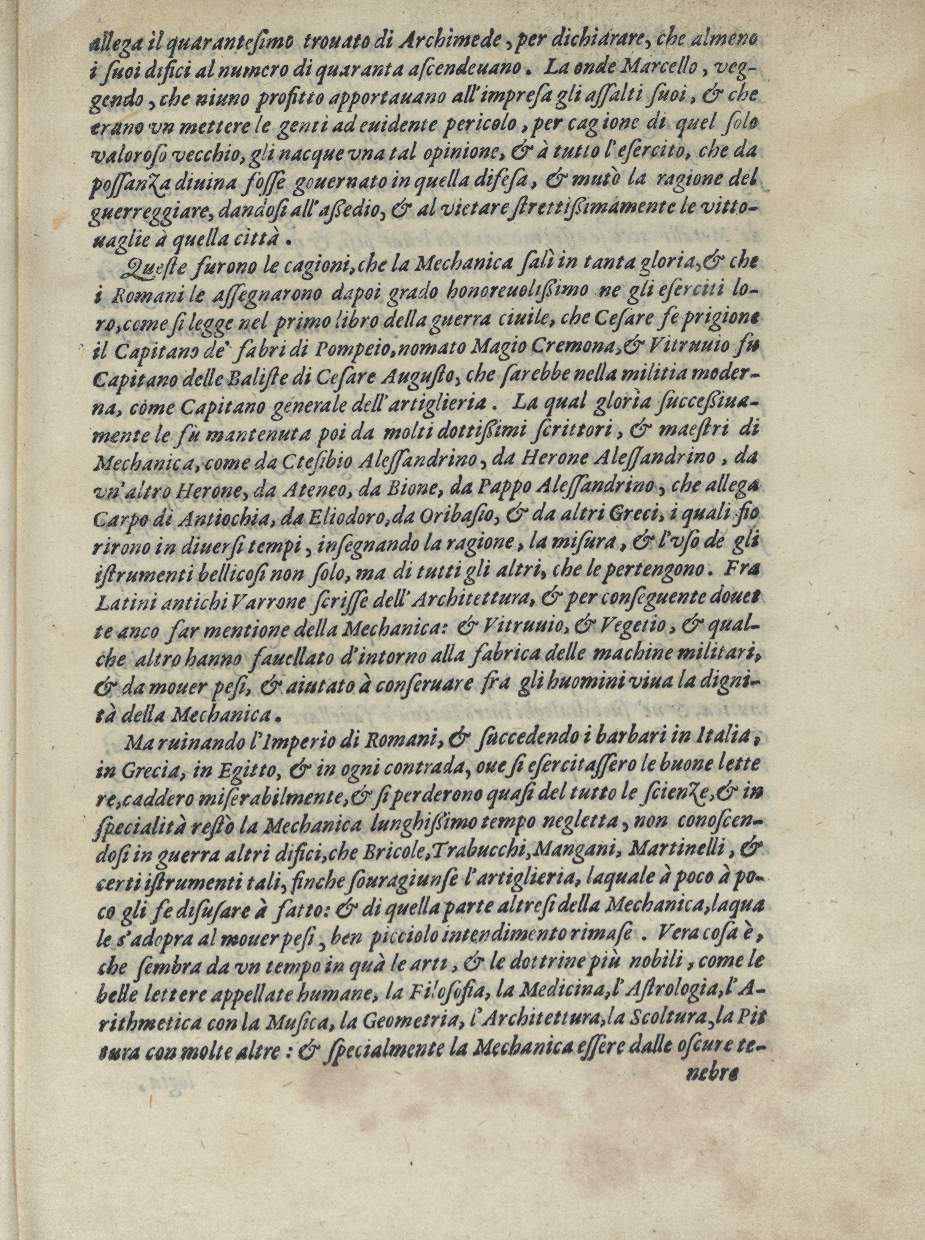 allega il quarantesimo trouato di Archimede, per dichiarare, che almeno
i ſuoi difici al numero di quaranta aſcendeuano. La onde Marcello, veg-
gendo, che niuno profitto apportauano all'impreſa gli aſſalti ſuoi, & che
erano vn mettere le genti ad euidente pericolo, per cagione di quel ſolo
valoroſo vecchio, gli nacque vna tal opinione, & à tutto l'eſercito, che da
poſſanza diuina foſſe gouernato in quella difeſa, & mutò la ragione del
guerreggiare, dandoſi all'aßedio, & al vietare ſtrettißimamente le vitto-
uaglie à quella città.
Queſte furono le cagioni, che la Mechanica ſalì in tanta gloria, & che
i Romani le aſſegnarono dapoi grado honoreuolißimo ne gli eſerciti lo-
ro, come ſi legge nel primo libro della guerra ciuile, che Ceſare fe prigione
il Capitano de' fabri di Pompeio, nomato Magio Cremona, & Vitruuio fu
Capitano delle Baliſte di Ceſare Auguſto, che ſarebbe nella militia moder-
na, come Capitano generale dell'artiglieria. La qual gloria ſucceßiua-
mente le fù mantenuta poi da molti dottißimi ſcrittori, & maeſtri di
Mechanica, come da Cteſibio Aleſſandrino, da Herone Aleſſandrino, da
vn'altro Herone, da Ateneo, da Bione, da Pappo Aleſſandrino, che allega
Carpo di Antiochia, da Eliodoro, da Oribaſio, & da altri Greci, i quali fio
rirono in diuerſi tempi, inſegnando la ragione, la miſura, & l'vſo de gli
iſtrumenti bellicoſi non ſolo, ma di tutti gli altri, che le pertengono. Fra
Latini antichi Varrone ſcriſſe dell'Architettura, & per conſeguente douet
te anco far mentione della Mechanica: & Vitruuio, & Vegetio, & qual-
che altro hanno fauellato d'intorno alla fabrica delle machine militari,
& da mouer peſi, & aiutato à conſeruare fra gli huomini viua la digni-
tà della Mechanica.
Ma ruinando l'Imperio di Romani, & ſuccedendo i barbari in Italia,
in Grecia, in Egitto, & in ogni contrada, oue ſi eſercitaſſero le buone lette
re, caddero miſerabilmente, & ſi perderono quaſi del tutto le ſcienze, & in
ſpecialità reſtò la Mechanica lunghißimo tempo negletta, non conoſcen-
doſi in guerra altri difici, che Bricole, Trabucchi, Mangani, Martinelli, &
certi iſtrumenti tali, finche ſouragiunſe l'artiglieria, laquale à poco à po-
co gli fe diſuſare à fatto: & di quella parte altreſi della Mechanica, laqua
le s'adopra al mouer peſi, ben picciolo intendimento rimaſe. Vera coſa è,
che ſembra da vn tempo in quà le arti, & le dottrine più nobili, come le
belle lettere appellate humane, la Filoſofia, la Medicina, l'Aſtrologia, l'A-
rithmetica con la Muſica, la Geometria, l'Architettura, la Scoltura, la Pit
tura con molte altre: & ſpecialmente la Mechanica eſſere dalle oſcure te-
nebre